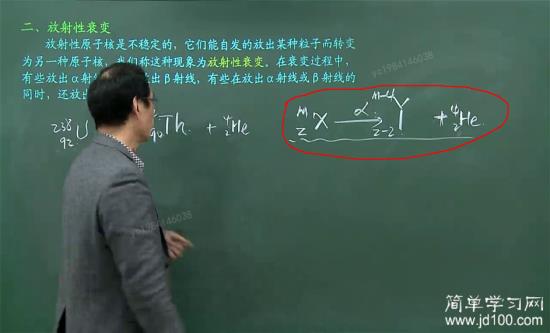 二、放射性衰变
放射性原子核是不稳定的，它们能自发的放出某种粒子而转变
为另一种原子核，我们称这种现象为放射性衰变。在衰变过程中，
有些放出α射 出β射线，有些在放出α射线或β射线的
同时，还放
²³⁸₉₂U ₉₀Th + ⁴₂He
ᵐ_Z X —α→ ᵐ⁻⁴_Z-2 Y + ⁴₂He
yc1984146038
yc1984146038
简单学习网
www.jd100.com